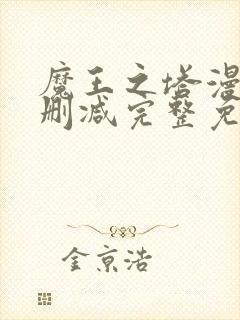 魔王之塔漫
删减完整免
金京浩